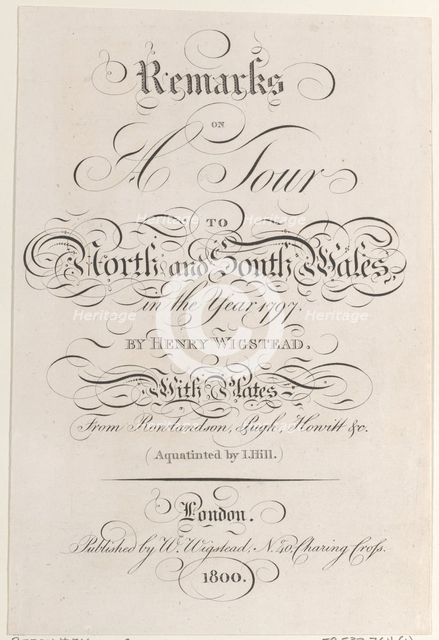 Remarks
ON
A Tour
TO
North and South Wales,
in the Year 1797.
BY HENRY WIGSTEAD.
With Plates
From Rowlandson, Pugh, Howitt &c.
(Aquatinted by I. Hill.)
London.
Published by W. Wigstead, No. 40, Charing Croſs.
1800.
Heritage
Heritage
Heritage
Heritage
Heritage
Heritage